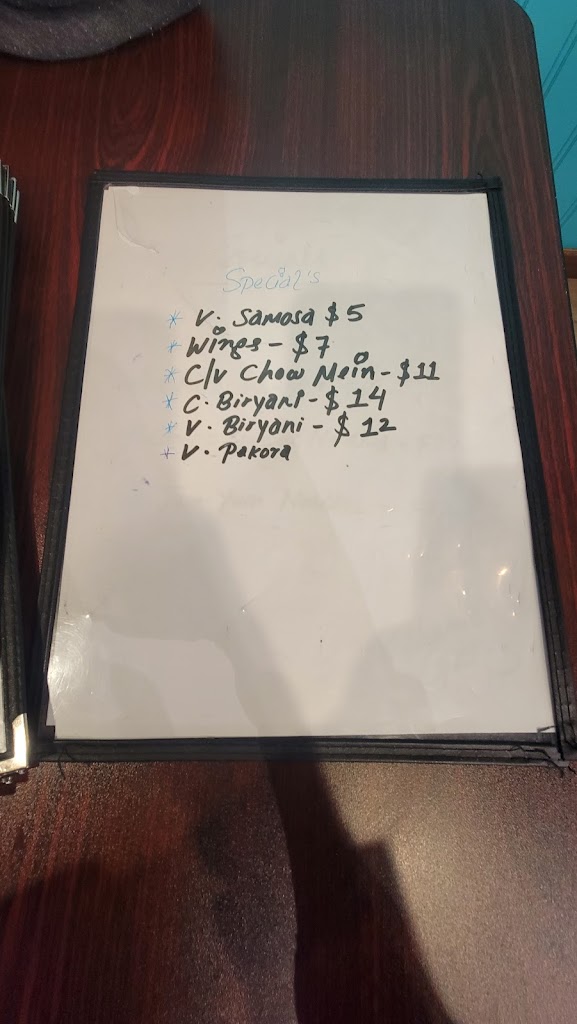 Special's
* V. Samosa $5
* Wings - $7
* C/V Chow Mein - $11
* C. Biryani - $14
* V. Biryani - $12
* V. Pakora